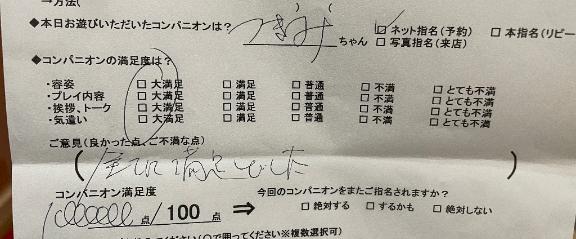 →方法(
◆本日お遊びいただいたコンパニオンは? ちゃん ☑ネット指名(予約) □本指名(リピー
□写真指名(来店)
◆コンパニオンの満足度は?
・容姿 □大満足 □満足 □普通 □不満 □とても不満
・プレイ内容 □大満足 □満足 □普通 □不満 □とても不満
・挨拶、トーク □大満足 □満足 □普通 □不満 □とても不満
・気遣い □大満足 □満足 □普通 □不満 □とても不満
ご意見(良かった点、ご不満な点)
(全てに満足でした)
コンパニオン満足度 今回のコンパニオンをまたご指名されますか?
点/100点 ⇒ □絶対する □するかも □絶対しない
ください(○で囲ってください※複数選択可)